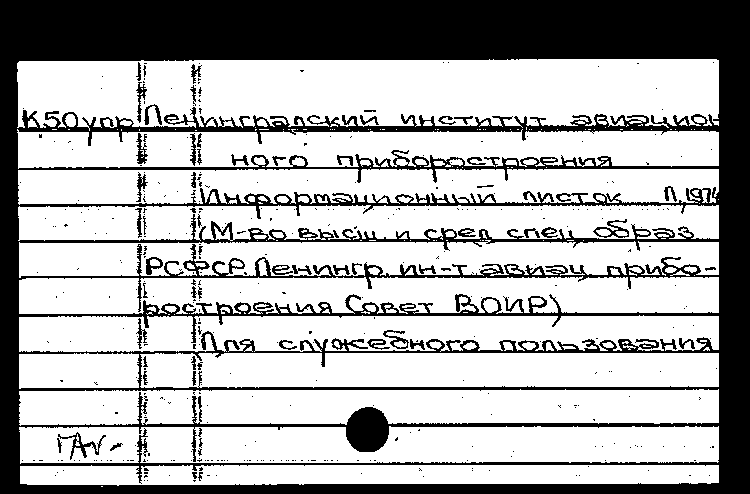 К50упр Ленинградский институт авиацион
ного приборостроения
Информационный листок Л, 1974
(М-во высш. и сред. спец. образ.
РСФСР. Ленингр. ин-т авиац. прибо-
ростроения. Совет ВОИР)
Для служебного пользования